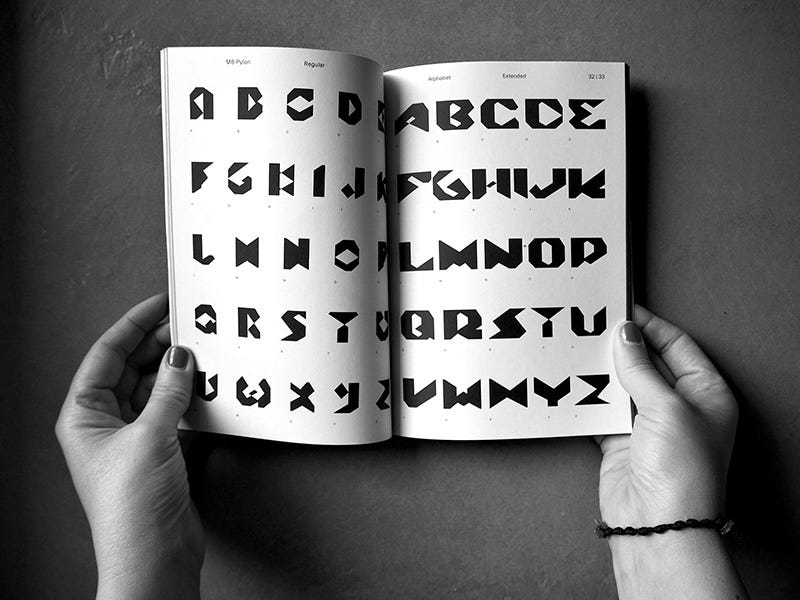 MB Pylon Regular
A B C D E
F G H I J K
L M N O P
Q R S T U
V W X Y Z
Alphabet Extended 32 | 33
ABCDE
FGHIJK
LMNOP
QRSTU
VWXYZ